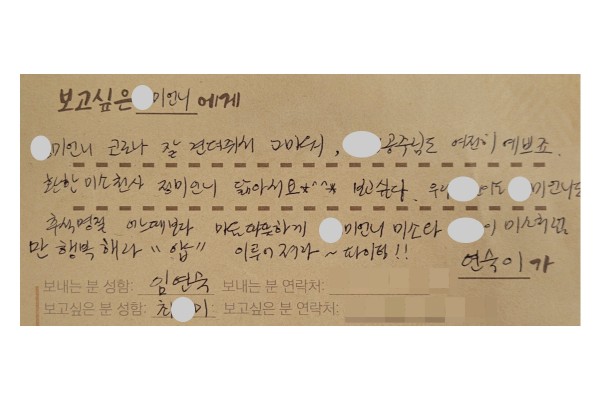 보고싶은 미언니에게
미언니 코로나 잘 견뎌줘서 고마워, 공주님도 여전히 예쁘죠.
환한 미소천사 정미언니 닮아서요*^^* 보고싶다. 우리 이도 미언니도
추석명절 어느때보다 마음따뜻하게 미언니 미소와 이 미소처럼
만 행복해라 "얍" 이루어져라~ 화이팅!!
연숙이가
보내는 분 성함: 임연숙 보내는 분 연락처:
보고싶은 분 성함: 최 미 보고싶은 분 연락처: